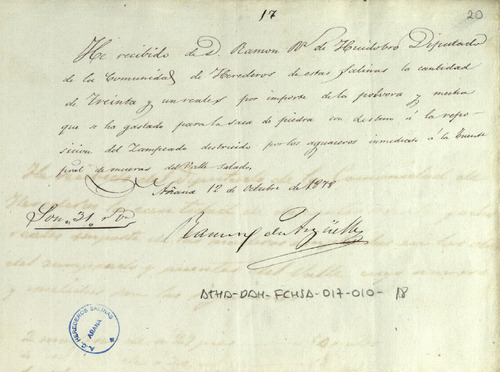 17
20
He recibido de D. Ramon Mª de Huidobro Diputado
de la Comunidad de Herederos de estas Salinas la cantidad
de Treinta y un reales por importe de la polvora y mecha
que se ha gastado para la saca de piedra con destino á la repo-
sicion del Zampeado destruido por los aguaceros inmediato á la Fuente
pral de mueras del Valle salado.
Añana 12 de Octubre de 1878
Son 31 Rs
Ramon de Argüelle
ATHA-DAH-FCHSA-017-010-18
A.C. HEREDEROS SALINAS
AÑANA